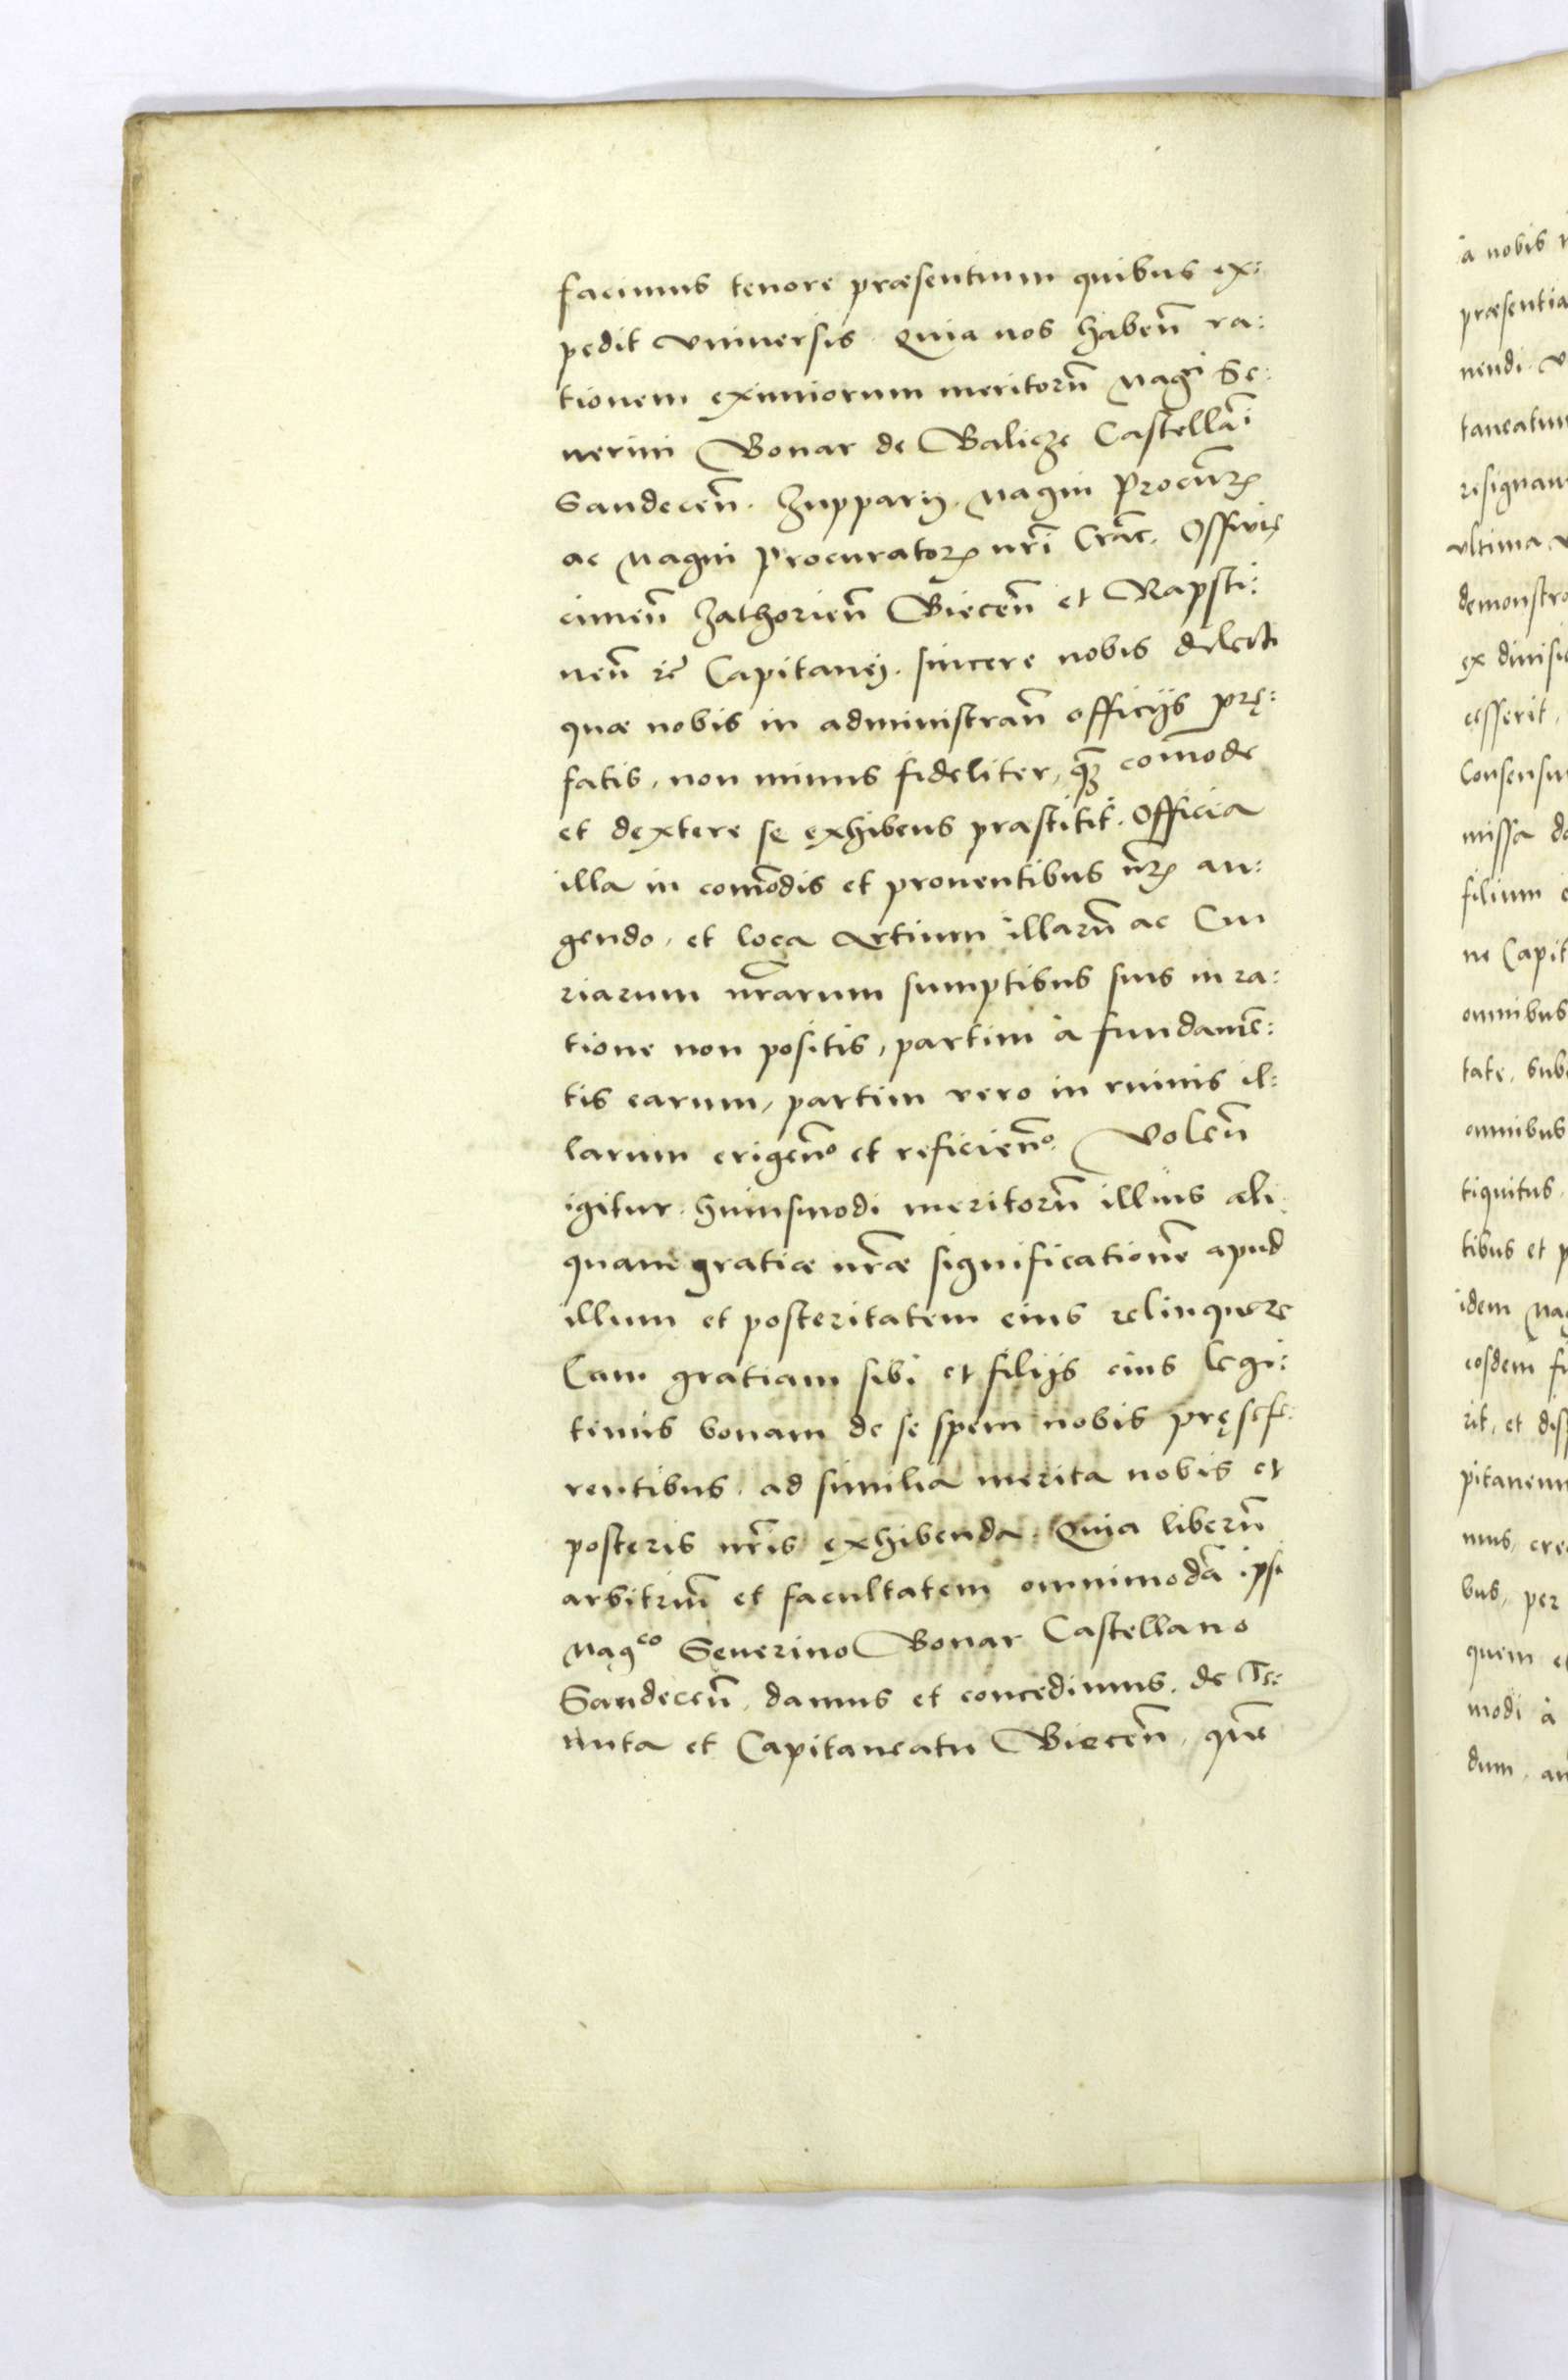 facimus tenore præsentium quibus ex:
pedit vniuersis. Quia nos habeñ ra:
tionem eximiorum meritorũ Magci Se:
uerini Bonar de Balicze Castellãi
Sandeceñ. Zupparij. Magni Procur̃
ac Magni Procurator̃ nr̃i Crac̃. Osswię
cimeñ Zathorieñ Bieceñ et Rapsti:
neñ ꝛc̃ Capitanej. sincere nobis dilecti
quæ nobis in administrañ officijs prę:
fatis, non minus fideliter, quã com̃ode
et dextere se exhibens præstitit. Officia
illa in com̃odis et prouentibus nr̃ au:
gendo, et loca Artium illarũ ac Cu
riarum nr̃arum sumptibus suis in ra:
tione non positis, partim à fundamẽ:
tis earum, partim vero in ruinis il:
larum erigeño et reficieño. Voleñ
igitur huiusmodi meritorũ illius ali
quam gratiæ nr̃æ significationẽ apud
illum et posteritatem eius relinquere
Eam gratiam sibi et filijs eius legi:
timis bonam de se spem nobis pręsefe:
rentibus, ad similia merita nobis et
posteris nr̃is exhibenda. Quia liberũ
arbitriũ et facultatem omnimodã ipsi
Magco Seuerino Bonar Castellano
Sandeceñ. damus et concedimus. de Te:
nuta et Capitaneatu Bieceñ, quẽ
à nobis
præsentia
nendi
taneatum
resignan
vltima
demonstra
ex diuisi
cesserit,
Consensu
missa
filium
ne Capit
omnibus
tate, sub
omnibus
tiquitus
tibus et
idem Mag
eosdem fi
rit, et dis
pitaneum
mus, cre
bus, per
quem
modi à
dum, an